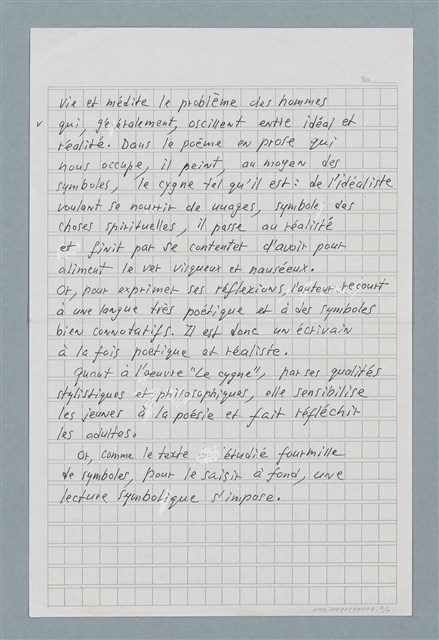 No
vie et médite le problème des hommes
v qui, généralement, oscillent entre idéal et
réalité. Dans le poème en prose qui
nous occupe, il peint, au moyen des
symboles, le cygne tel qu'il est : de l'idéaliste
voulant se nourrir de nuages, symbole des
choses spirituelles, il passe au réaliste
et finit par se contenter d'avoir pour
aliment le ver visqueux et nauséeux.
Or, pour exprimer ses réflexions, l'auteur recourt
à une langue très poétique et à des symboles
bien connotatifs. Il est donc un écrivain
à la fois poétique et réaliste.
Quant à l'oeuvre "Le cygne", par ses qualités
stylistiques et philosophiques, elle sensibilise
les jeunes à la poésie et fait réfléchir
les adultes.
Or, comme le texte étudié fourmille
de symboles, pour le saisir à fond, une
lecture symbolique s'impose.